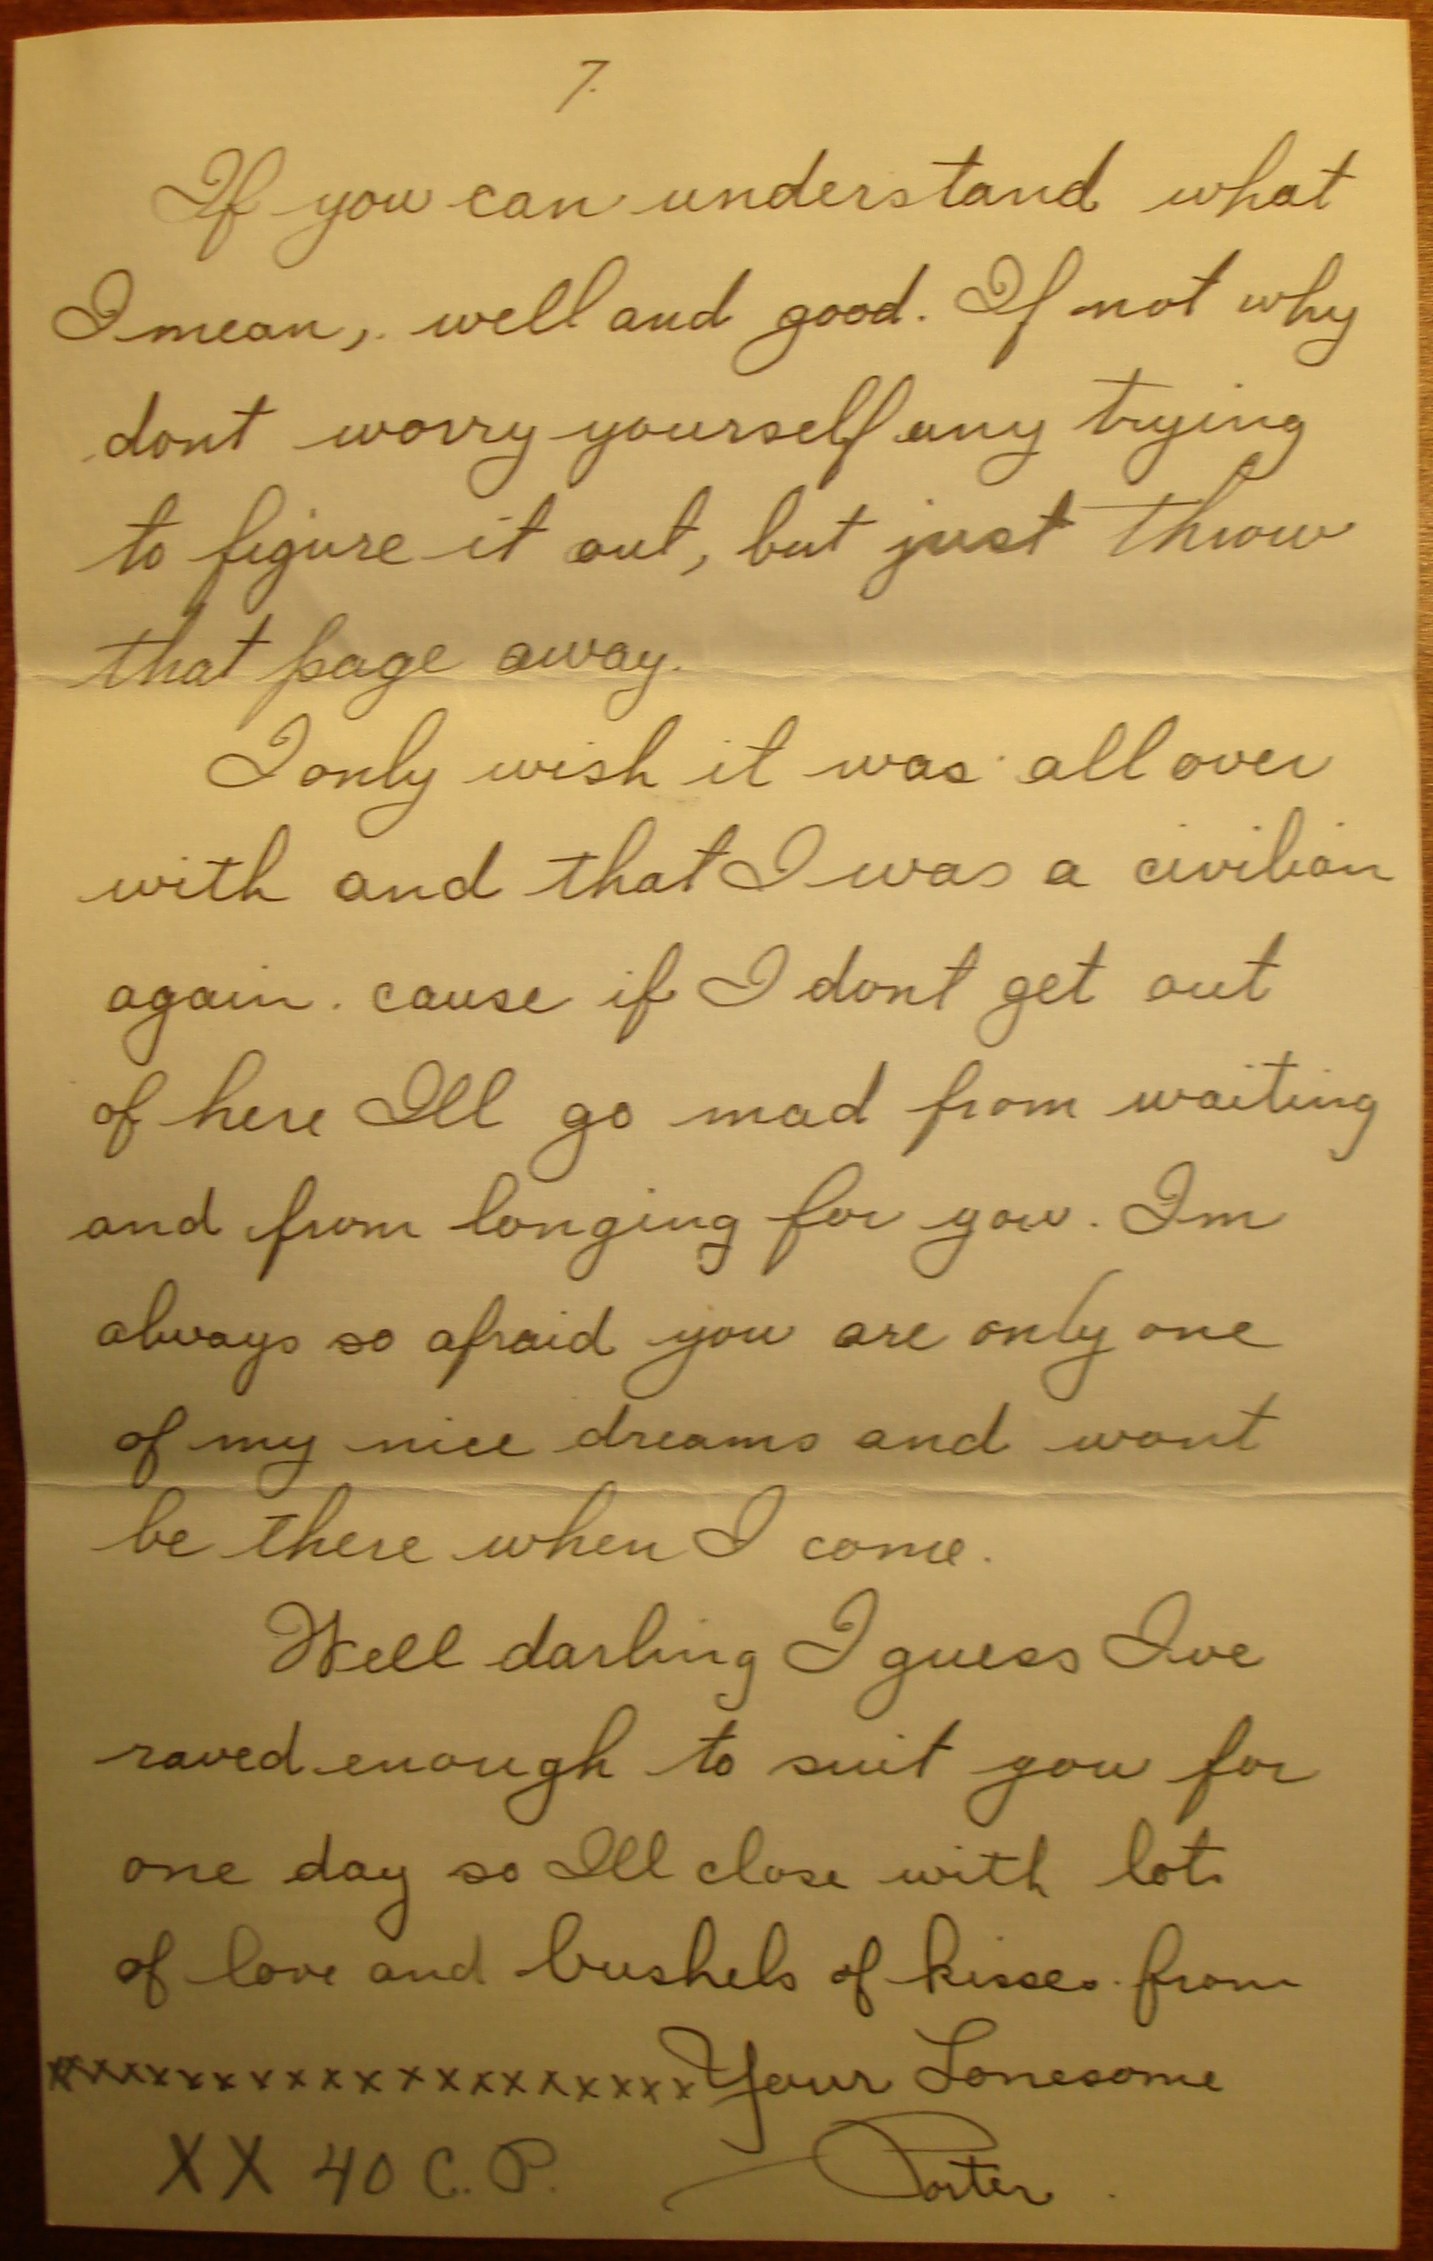 7.
If you can understand what
I mean, well and good. If not why
dont worry yourself any trying
to figure it out, but just throw
that page away.
I only wish it was all over
with and that I was a civilian
again. cause if I dont get out
of here Ill go mad from waiting
and from longing for you. Im
always so afraid you are only one
of my nice dreams and wont
be there when I come.
Well darling I guess Ive
raved enough to suit you for
one day so Ill close with lots
of love and bushels of kisses from
xxxxxxxxxxxxxxxxxxxx Your Lonesome
XX 40 C.P. Porter.